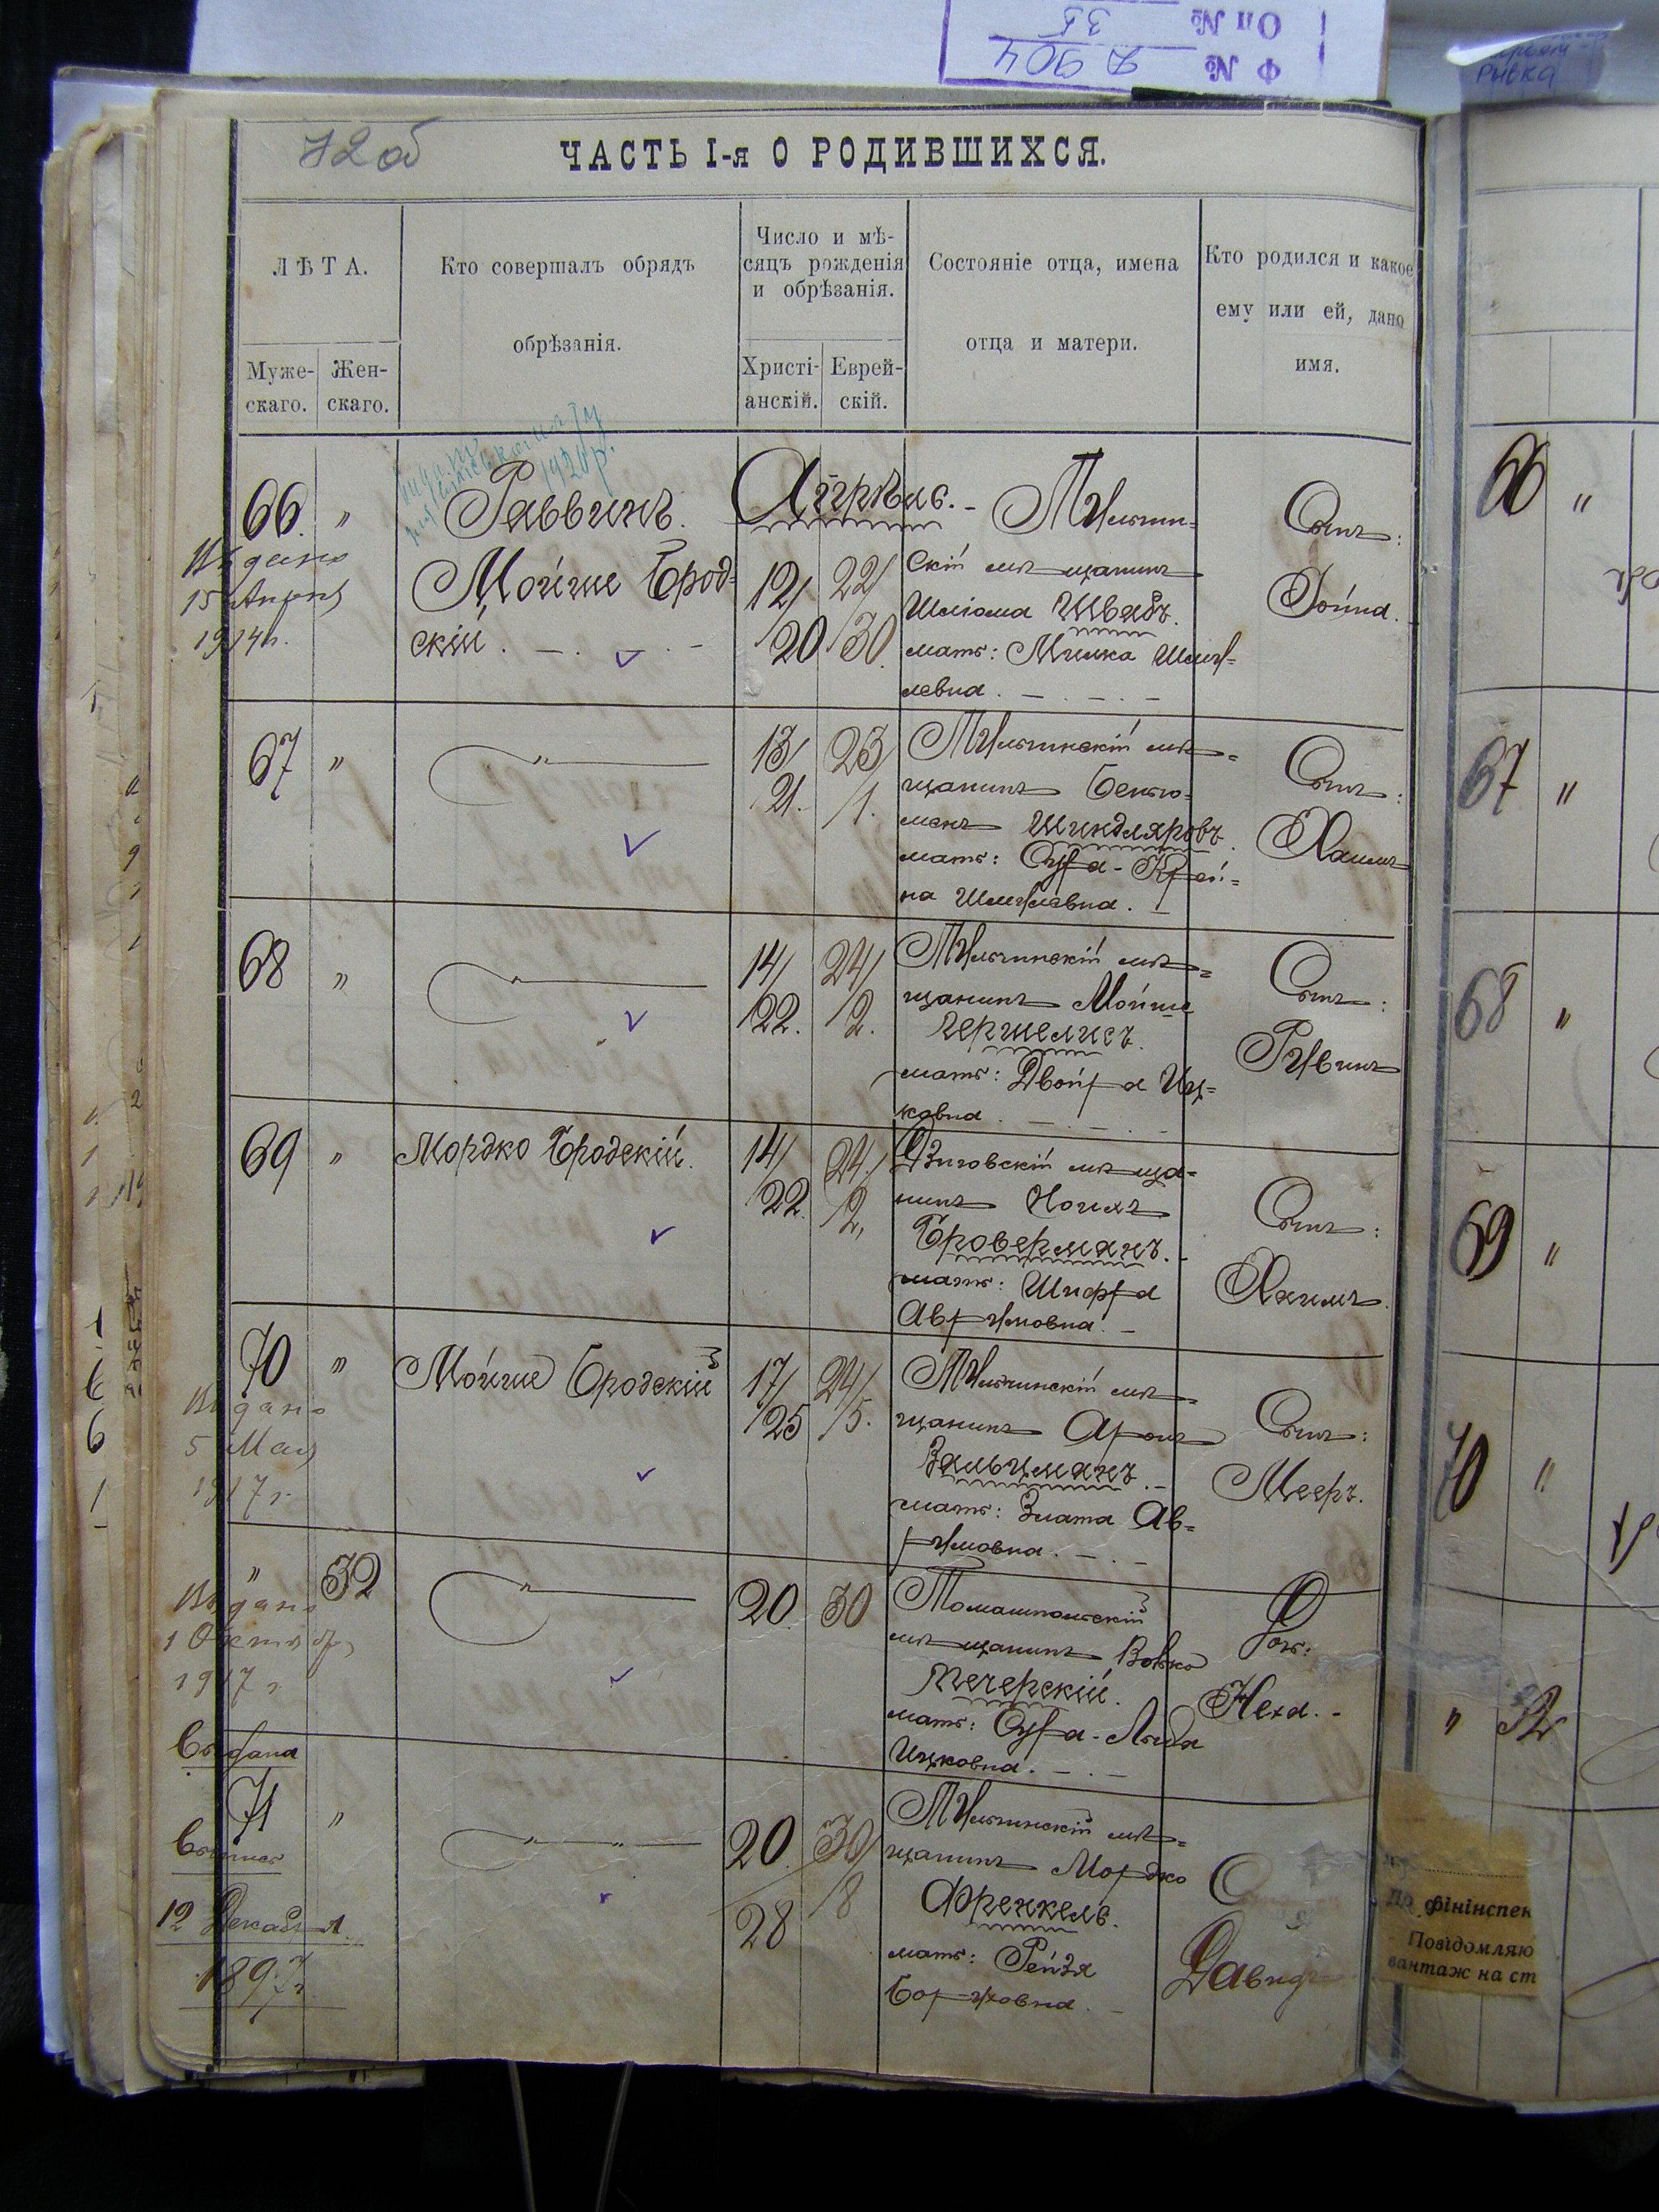 Ф № Д 904
Оп № 35
Рывка
72об
ЧАСТЬ I-я О РОДИВШИХСЯ.
ЛѢТА.
Муже-
скаго.
Жен-
скаго.
Кто совершалъ обрядъ
обрѣзанія.
Число и мѣ-
сяцъ рожденія
и обрѣзанія.
Христі-
анскій.
Еврей-
скій.
Состояніе отца, имена
отца и матери.
Кто родился и какое
ему или ей, дано
имя.
1920 р.
66. "
Выдано
15 Апреля
1914 г.
Раввинъ
Мойше Брод-
скій. — . — . —
Апрѣль. —
12/ 22/
/20 /30.
Тульчин-
скій мѣщанинъ
Шліома Швабъ.
мать: Милка Шмуй-
левна . — . — . —
Сынъ:
Іойна.
67 "
"
13/ 23/
/21. /1.
Тульчинскій мѣ-
щанинъ Беньо-
менъ Шикдляровъ.
мать: Сура-Крей-
на Шмулевна. —
Сынъ:
Хаимъ
68 "
"
14/ 24/
/22. /2.
Тульчинскій мѣ-
щанинъ Мойше
Гершелисъ.
мать: Двойра Иц-
ковна . — . — . —
Сынъ:
Рувинъ
69 "
Мордко Бродскій.
14/ 24./
/22. /2.
Дзиговскій мѣща-
нинъ Ноихъ
Броверманъ. —
мать: Шифра
Аврумовна. —
Сынъ:
Хаимъ.
70 "
Выдано
5 Мая
1917 г.
Мойше Бродскій
17/ 24/
/25 /5.
Тульчинскій мѣ-
щанинъ Аронъ
Зальцманъ. —
мать: Злата Ав-
румовна . — . —
Сынъ:
Мееръ.
" 32
Выдано
1 Октября
1917 г
"
20. 30
Томашпольскій
мѣщанинъ Волько
Печерскій.
мать: Сура-Лыба
Ицковна. — . —
Дочь:
Неха. —
Выдана
71 "
Выпись
12 Декабря.
1897 г.
" "
20. 30/
28 /8
Тульчинскій мѣ-
щанинъ Мордко
Френкель.
мать: Рейзя
Боруховна. —
Давидъ
66 "
67 "
68 "
69 "
70 "
" 32
фінінспек
Повідомляю
вантаж на ст